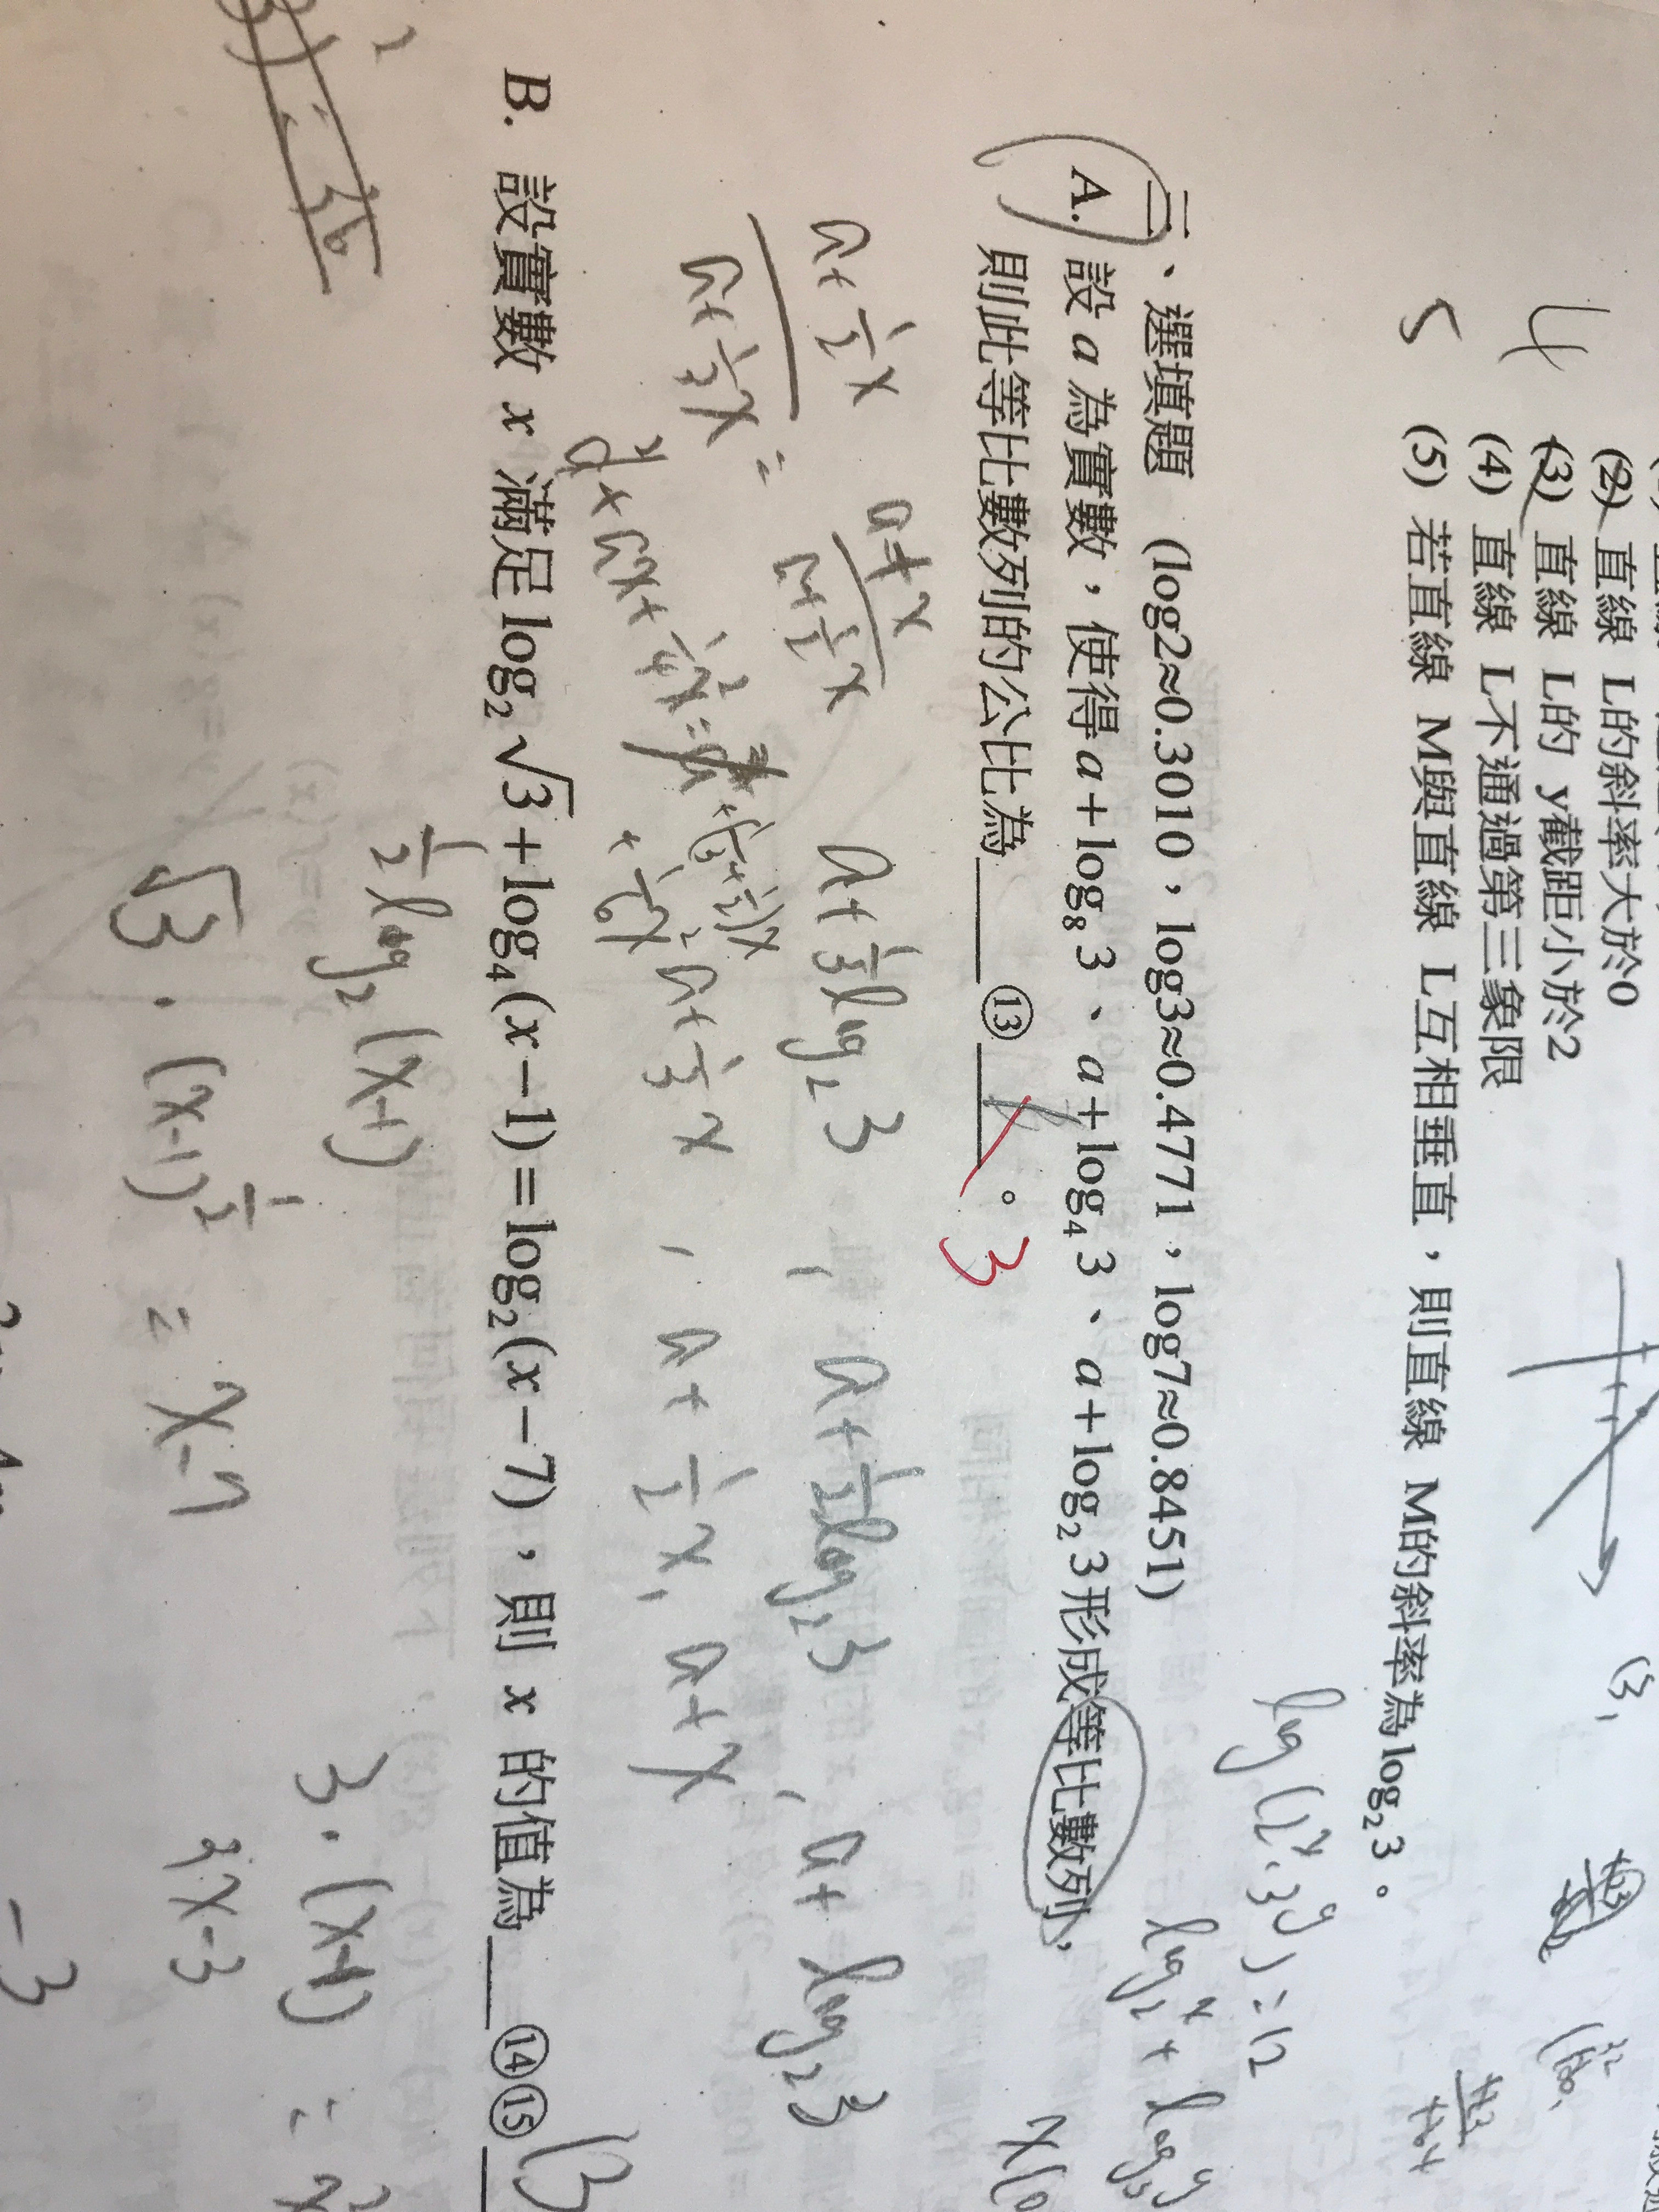 (2) 直線 L的斜率大於0
(3) 直線 L的 y截距小於2
4 (4) 直線 L不通過第三象限
5 (5) 若直線 M與直線 L互相垂直，則直線 M的斜率為log₂3。
(3,
log(2ˣ·3ʸ)=12
二、選填題 (log2≈0.3010，log3≈0.4771，log7≈0.8451)
A. 設 a 為實數，使得 a+log₈3、a+log₄3、a+log₂3形成等比數列，
則此等比數列的公比為 ⑬ 。 3
a+1/3 log₂3 , a+1/2 log₂3 , a+log₂3
a+1/2x / a+1/3x = a+x / a+1/2x
a+1/3x , a+1/2x , a+x
B. 設實數 x 滿足 log₂√3+log₄(x−1)=log₂(x−7)，則 x 的值為 ⑭⑮
13
1/2 log₂(x-1)
3·(x-1) =
√3 · (x-1)^1/2 = x-7
3x-3
-3